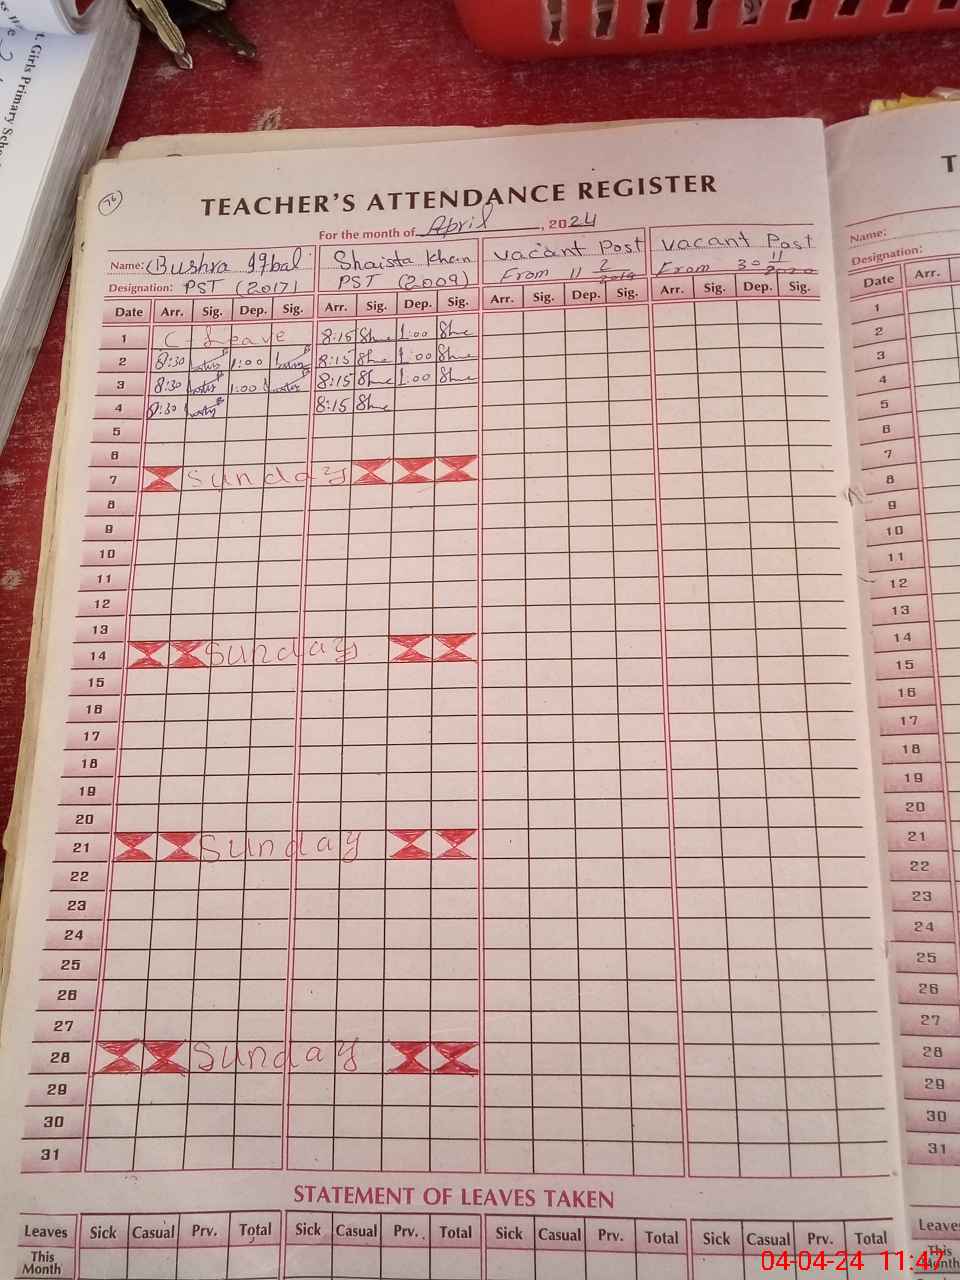 t. Girls Primary Scho
76
TEACHER'S ATTENDANCE REGISTER
For the month of April, 2024
Name: Bushra Iqbal Shaista Khan Vacant Post Vacant Post
Designation: PST (2017) PST (2009) From 11 2 2019 From 30 11 2020
Date Arr. Sig. Dep. Sig. Arr. Sig. Dep. Sig. Arr. Sig. Dep. Sig. Arr. Sig. Dep. Sig.
1 C-Leave 8:15 Sha 1:00 Sha
2 8:30 1:00 8:15 Sha 1:00 Sha
3 8:30 1:00 8:15 Sha 1:00 Sha
4 8:30 8:15 Sha
5
6
7 Sunday
8
9
10
11
12
13
14 Sunday
15
16
17
18
19
20
21 Sunday
22
23
24
25
26
27
28 Sunday
29
30
31
STATEMENT OF LEAVES TAKEN
Leaves Sick Casual Prv. Total Sick Casual Prv. Total Sick Casual Prv. Total Sick Casual Prv. Total
This Month
T
Name:
Designation:
Date Arr.
1
2
3
4
5
6
7
8
9
10
11
12
13
14
15
16
17
18
19
20
21
22
23
24
25
26
27
28
29
30
31
Leaves
This Month
04-04-24 11:47